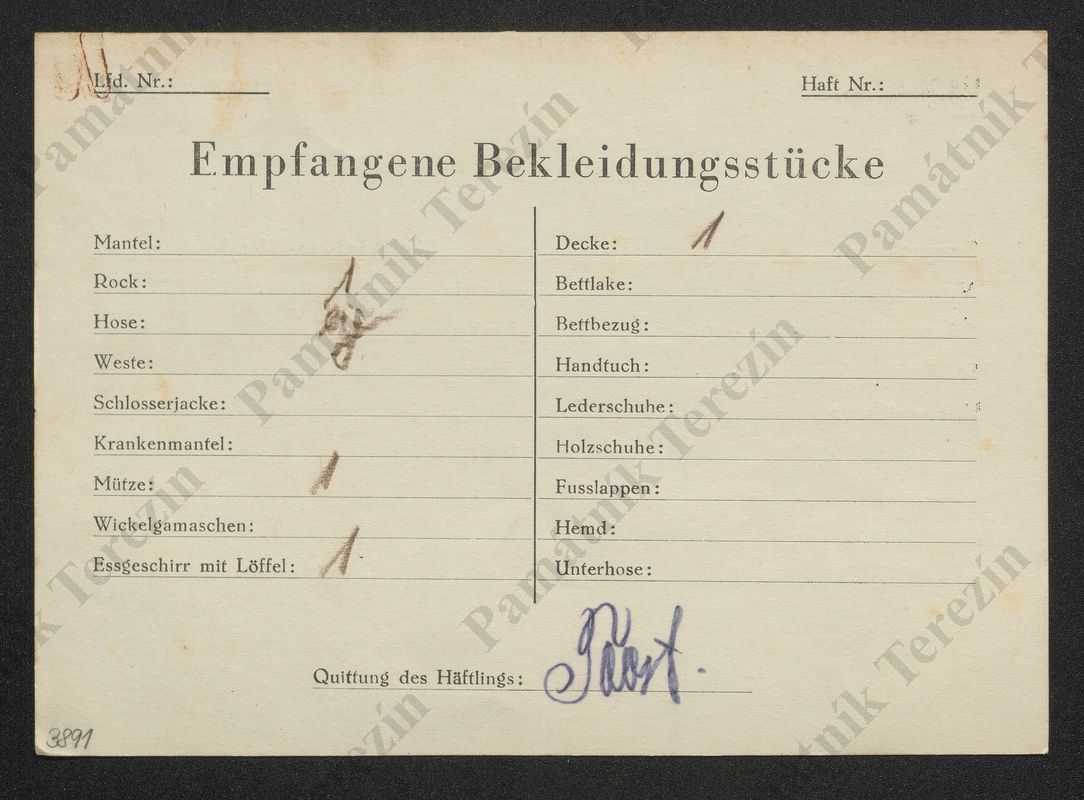 Lfd. Nr.:
Haft Nr.:
Empfangene Bekleidungsstücke
Mantel:
Rock: 1
Hose:
Weste:
Schlosserjacke:
Krankenmantel:
Mütze: 1
Wickelgamaschen:
Essgeschirr mit Löffel: 1
Decke: 1
Bettlake:
Bettbezug:
Handtuch:
Lederschuhe:
Holzschuhe:
Fusslappen:
Hemd:
Unterhose:
Quittung des Häftlings:
3891
Památník Terezín